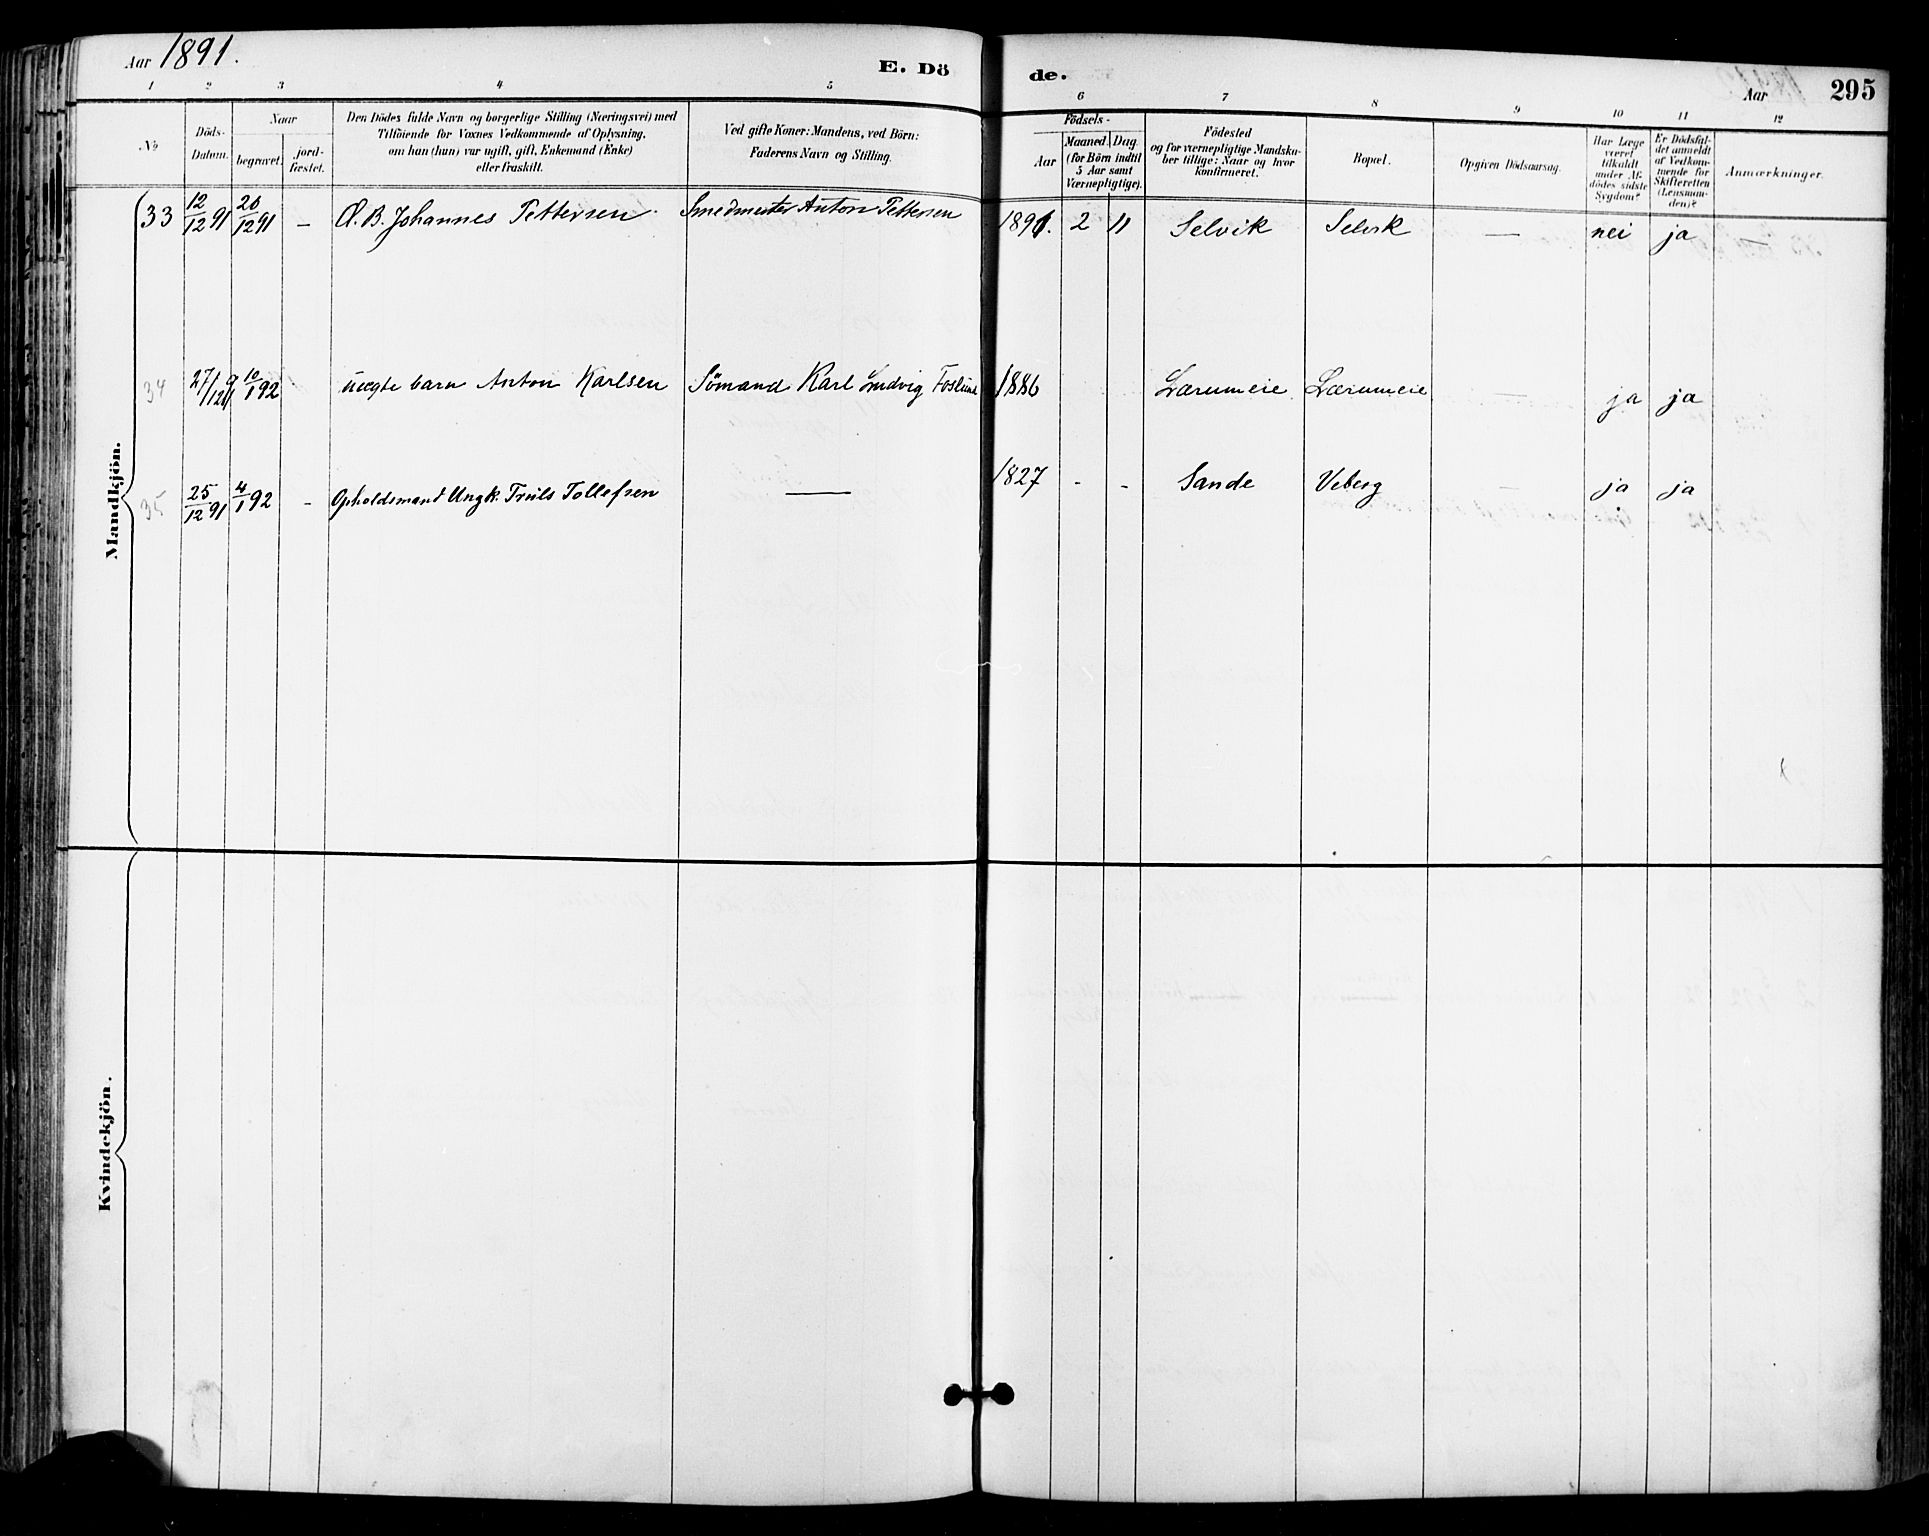 Aar 1891.
E. Dö
de.
Aar
295
1 2 3 4 5 6 7 8 9 10 11 12
No
Döds-
Datum.
Naar
begravet.
jord-
fæstet.
Den Dödes fulde Navn og borgerlige Stilling (Næringsvei) med
Tilföiende for Voxnes Vedkommende af Oplysning,
om han (hun) var ugift, gift, Enkemand (Enke)
eller fraskilt.
Ved gifte Koner: Mandens, ved Börn:
Faderens Navn og Stilling.
Födsels-
Aar
Maaned.
Dag
(for Börn indtil
5 Aar samt
Værnepligtige).
Födested
og for værnepligtige Mandska-
ber tillige: Naar og hvor
konfirmeret.
Bopæl.
Opgiven Dödsaarsag.
Har Læge
været
tilkaldt
under Af-
dödes sidste
Sygdom?
Er Dödsfal-
det anmeldt
af Vedkom-
mende for
Skifteretten
(Lensman-
den)?
Anmærkninger.
Mandkjön.
33 12/12 91 20/12 91 — Æ. B. Johannes Pettersen Smedmester Anton Pettersen 1891. 2 11 Selvik Selvik — nei ja —
34 27/12 91 10/1 92 uægte barn Anton Karlsen Sömand Karl Ludvig Foslund 1886 Lærumeie Lærumeie — ja ja
35 25/12 91 4/1 92 - Opholdsmand Ungk. Truls Tollefsen — 1827 - - Sande Veberg — ja ja
Kvindekjön.